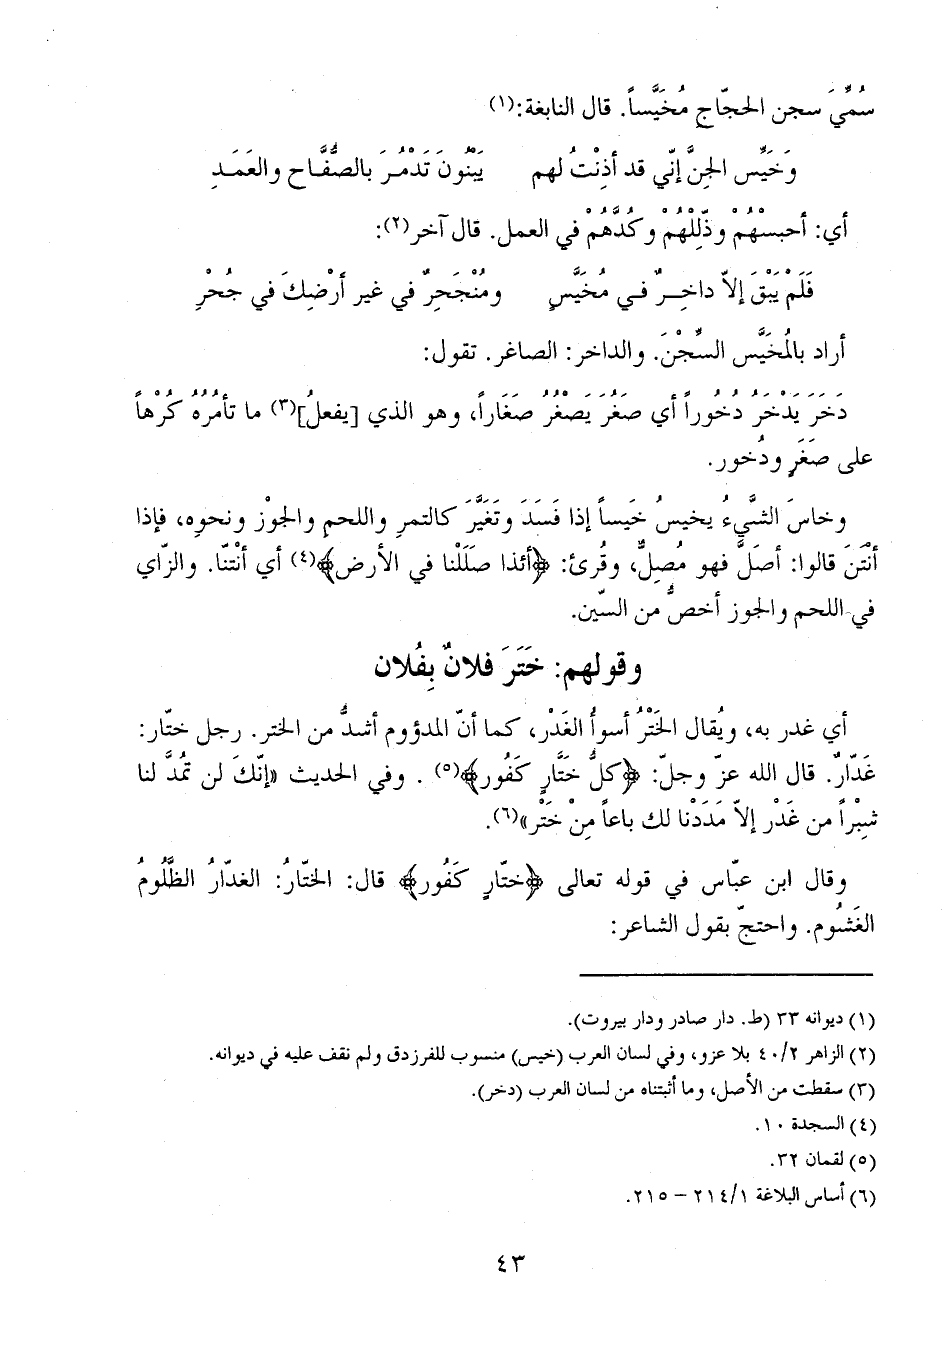 سُمِّيَ سجن الحجّاج مُخَيَّساً. قال النابغة:(١)
وَخَيِّس الجِنَّ إنّي قد أذِنْتُ لهم يَبْنُونَ تَدْمُرَ بالصُّفَّاح والعَمَدِ
أي: أحبسْهُمْ وذَلِّلْهُمْ وكُدَّهُمْ في العمل. قال آخر(٢):
فَلَمْ يَبْقَ إلاّ داخِرٌ في مُخَيَّسٍ ومُنْجَحِرٌ في غير أرْضِكَ في جُحْرِ
أراد بالمُخَيَّس السِّجْنَ. والداخر: الصاغر. تقول:
دَخَرَ يَدْخَرُ دُخُوراً أي صَغُرَ يَصْغُرُ صَغَاراً، وهو الذي [يفعلُ](٣) ما تأمُرُهُ كُرْهاً
على صَغَرٍ ودُخور.
وخاسَ الشَّيءُ يخيسُ خَيساً إذا فَسَدَ وتَغَيَّرَ كالتمرِ واللحمِ والجوْز ونحوِه، فإذا
أنْتَنَ قالوا: أصَلَّ فهو مُصِلٌّ، وقُرئ: ﴿أئذا صَلَلْنا في الأرض﴾(٤) أي أنْتنّا. والزّاي
في اللحم والجوز أخصُّ من السّين.
وقولهم: خَتَرَ فلانٌ بِفُلان
أي غدر به، ويُقال الخَتْرُ أسوأُ الغَدْر، كما أنّ المدؤوم أشدُّ من الختر. رجل ختّار:
غَدّارٌ. قال الله عزّ وجلّ: ﴿كلُّ خَتَّارٍ كَفُور﴾(٥) . وفي الحديث «إنّكَ لن تمُدَّ لنا
شبْراً من غَدْر إلاّ مَدَدْنا لك باعاً مِنْ خَتْر»(٦).
وقال ابن عبّاس في قوله تعالى ﴿ختّارٍ كَفُور﴾ قال: الختّارُ: الغدّارُ الظَّلُومُ
الغَشُوم. واحتجّ بقول الشاعر:
(١) ديوانه ٣٣ (ط. دار صادر ودار بيروت).
(٢) الزاهر ٤٠/٢ بلا عزو، وفي لسان العرب (خيس) منسوب للفرزدق ولم نقف عليه في ديوانه.
(٣) سقطت من الأصل، وما أثبتناه من لسان العرب (دخر).
(٤) السجدة ١٠.
(٥) لقمان ٣٢.
(٦) أساس البلاغة ٢١٤/١ – ٢١٥.
٤٣